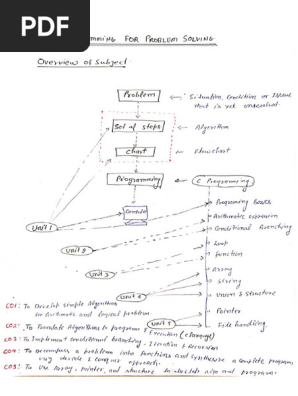 PDF
MMING FOR PROBLEM SOLVING
Overview of Subject
Problem
Situation, Condition or Issue
that is yet unresolved
Set of steps
Algorithm
Chart
Flowchart
Programming
C Programming
Computer
Programing Basics
Arithmetic expression
Conditional Branching
Unit 1
Loop
Unit 2
Function
Unit 3
Array
String
Union & Structure
Unit 4
Pointer
Unit 5
File handling
CO1: To Develop simple Algorithms
for Arithmetic and logical problem
CO2: To Translate Algorithms to programs & Execution
CO3: To Implement conditional branching, Iteration & Recursion
CO4: To Decompose a problem into functions and synthesize a complete program
using divide & conquer approach.
CO5: To Use Array, pointer, and structure to algo and programs